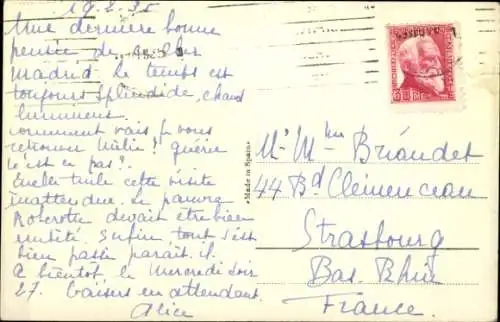 19.2.35
Une dernière bonne
pensée de
Madrid. Le temps est
toujours splendide, chaud
lumineux
comment vais je vous
retrouver Milie? guérie
n'est ce pas?
cette visite
inattendue. Le pauvre
devait être bien
embêté enfin tout s'est
bien passé parait-il.
A bientôt le Mercredi soir
27. Baisers en attendant.
Alice
Made in Spain
Mr Mme Briandet
44 Bd Clémenceau
Strasbourg
Bas. Rhin
France.